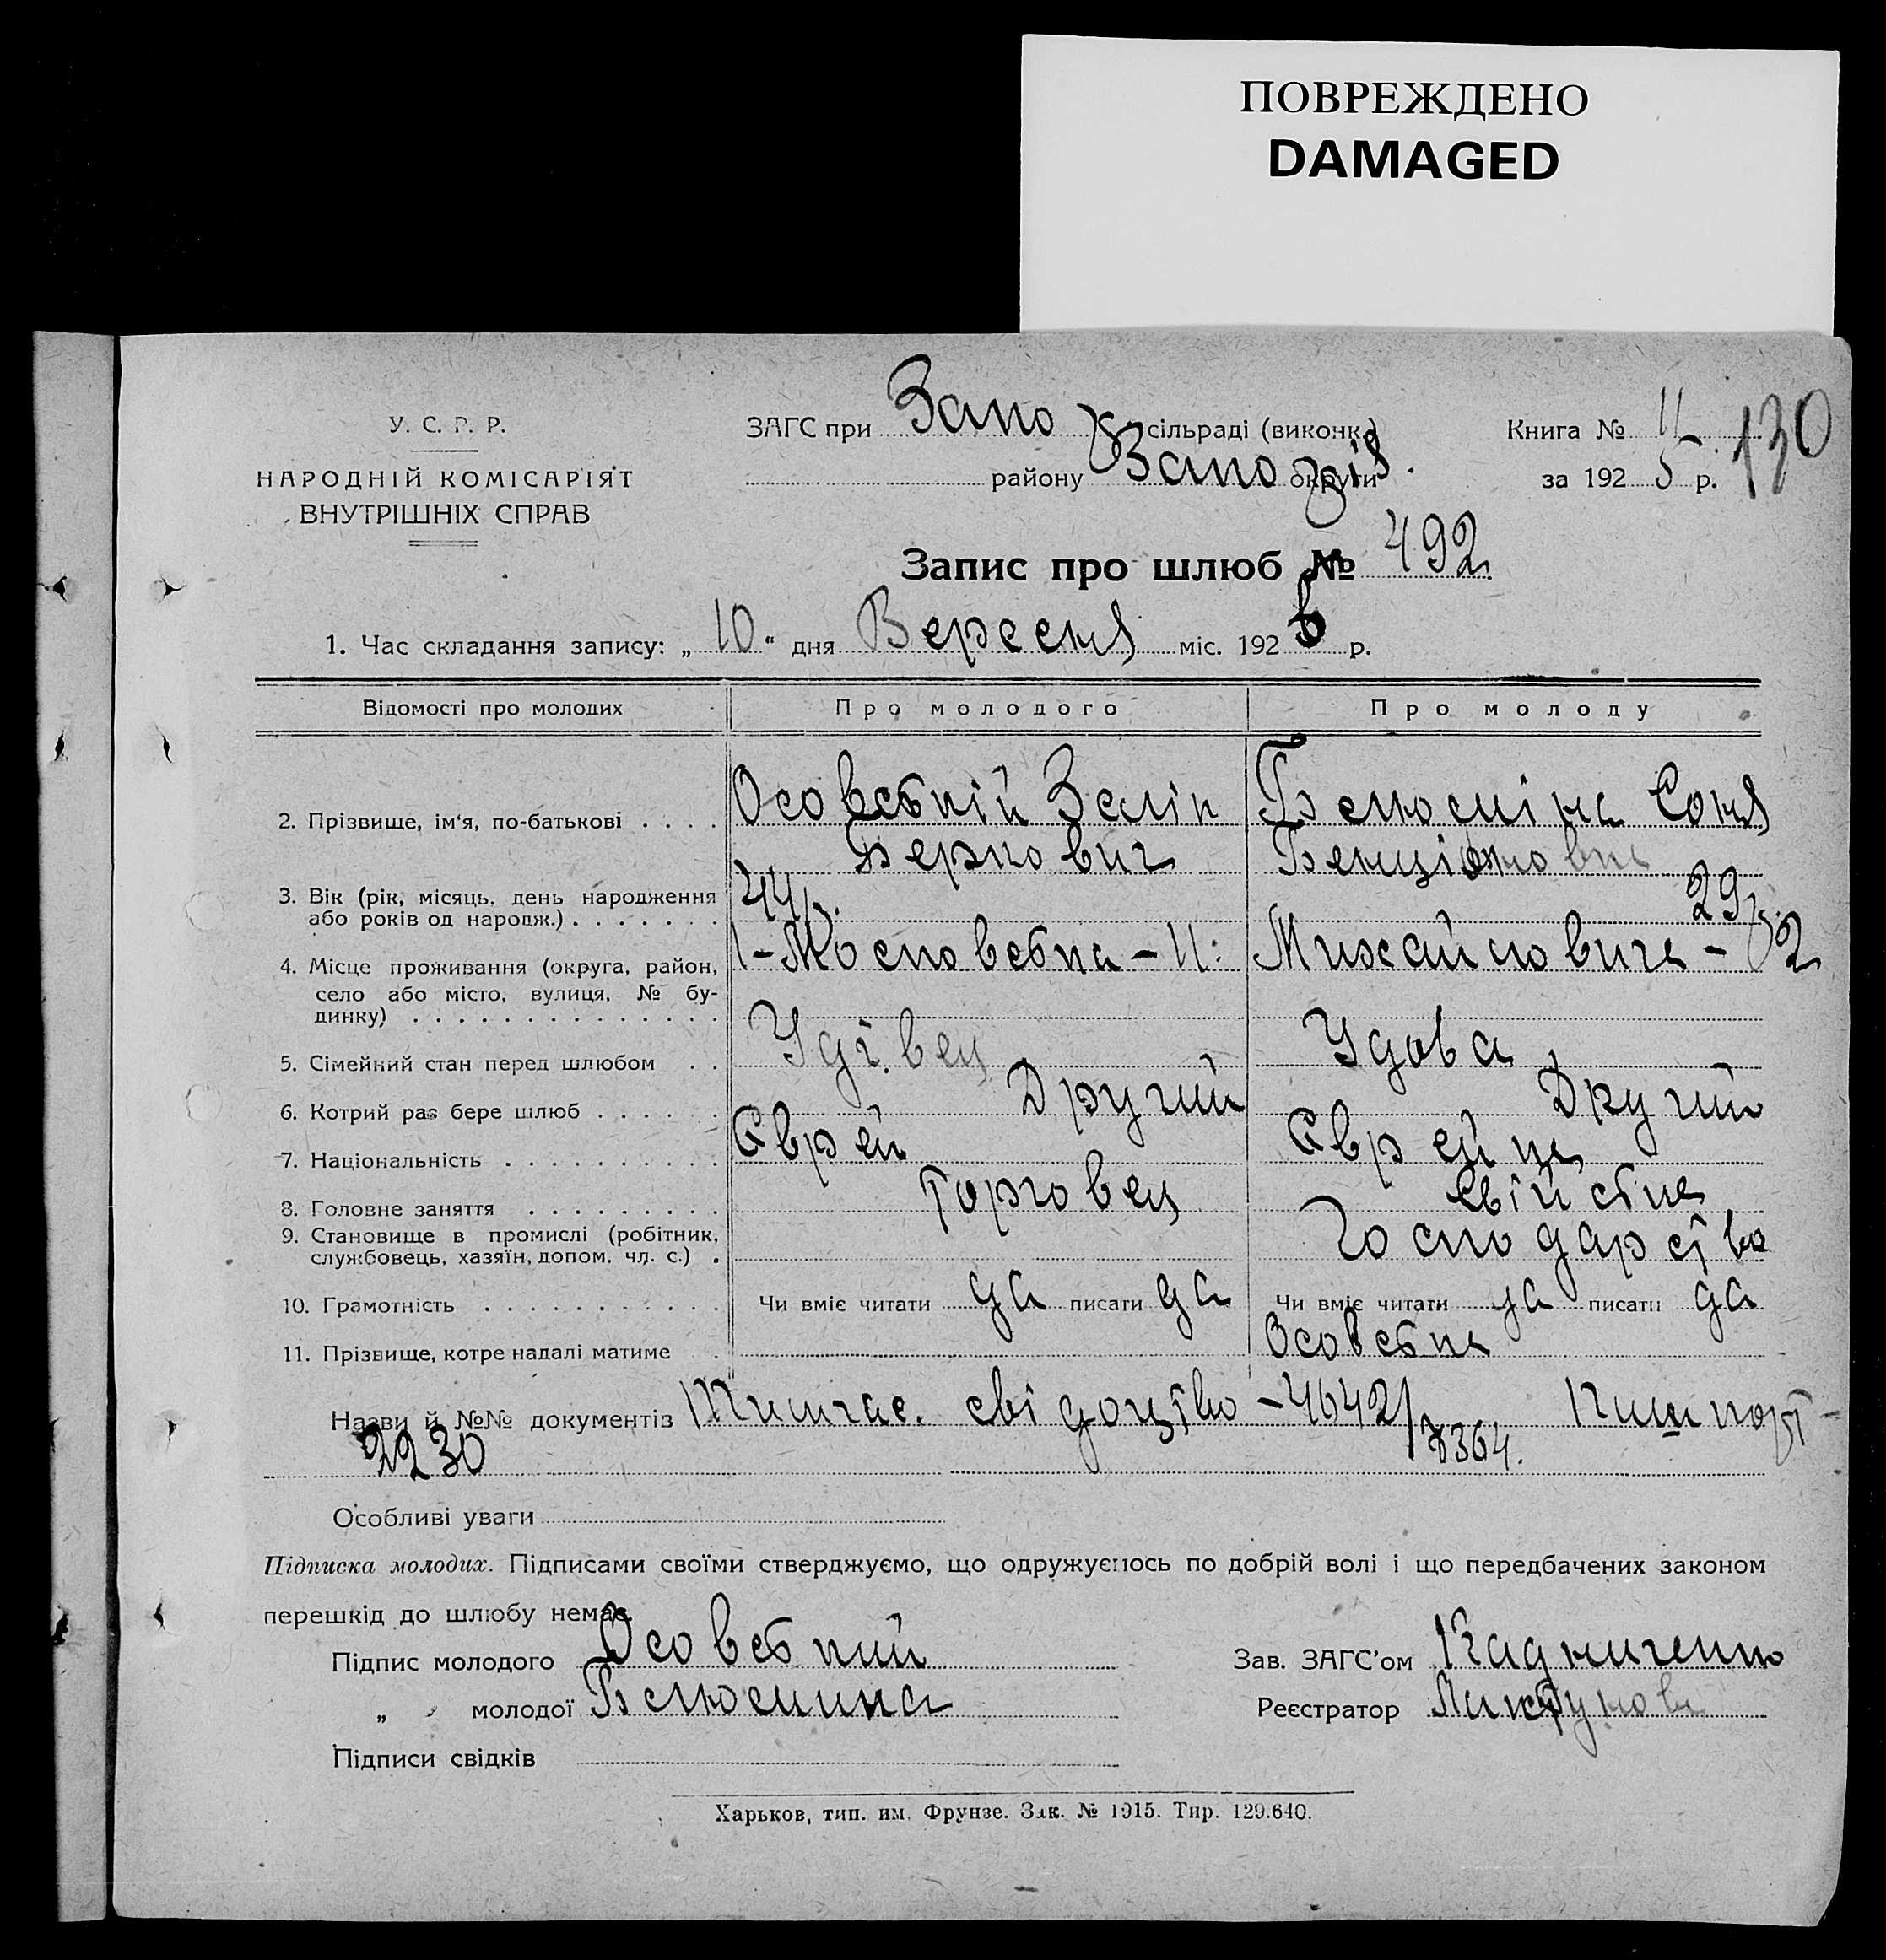 ПОВРЕЖДЕНО
DAMAGED
У. С. Р. Р.
НАРОДНІЙ КОМІСАРІЯТ
ВНУТРІШНІХ СПРАВ
ЗАГС при Запо сільраді (виконк.)
району Запо округи
Книга № 11 130
за 192 5 р.
Запис про шлюб № 492
1. Час складання запису: „ 10 “ дня Вересня міс. 192 5 р.
Відомості про молодих Про молодого Про молоду
2. Прізвище, ім'я, по-батькові . . . . Осовський Зелік Белюсміна Соня
Беркович Бенціоновна
3. Вік (рік, місяць, день народження 44 р. 29 р.
або років од народж.) . . . . . . .
4. Місце проживання (округа, район, 1-Московська-11: Михайловича-82
село або місто, вулиця, № бу-
динку) . . . . . . . . . . . . . .
5. Сімейний стан перед шлюбом . . Удівец Удова
6. Котрий раз бере шлюб . . . . . . Другий Другий
7. Національність . . . . . . . . . . Єврей Єврейка
8. Головне заняття . . . . . . . . . Торговец свійське
9. Становище в промислі (робітник, господарство
службовець, хазяїн, допом. чл. с.) .
10. Грамотність . . . . . . . . . . . Чи вміє читати да писати да Чи вміє читати да писати да
11. Прізвище, котре надалі матиме . Осовська
Назви й №№ документів Тимчас. свідоцтво -4642/7364. Пашпорт-
2230
Особливі уваги
Підписка молодих. Підписами своїми стверджуємо, що одружуємось по добрій волі і що передбачених законом
перешкід до шлюбу немає.
Підпис молодого Осовский Зав. ЗАГС'ом
„ „ молодої Белюсмина Реєстратор
Підписи свідків
Харьков, тип. им. Фрунзе. Зак. № 1915. Тир. 129.640.